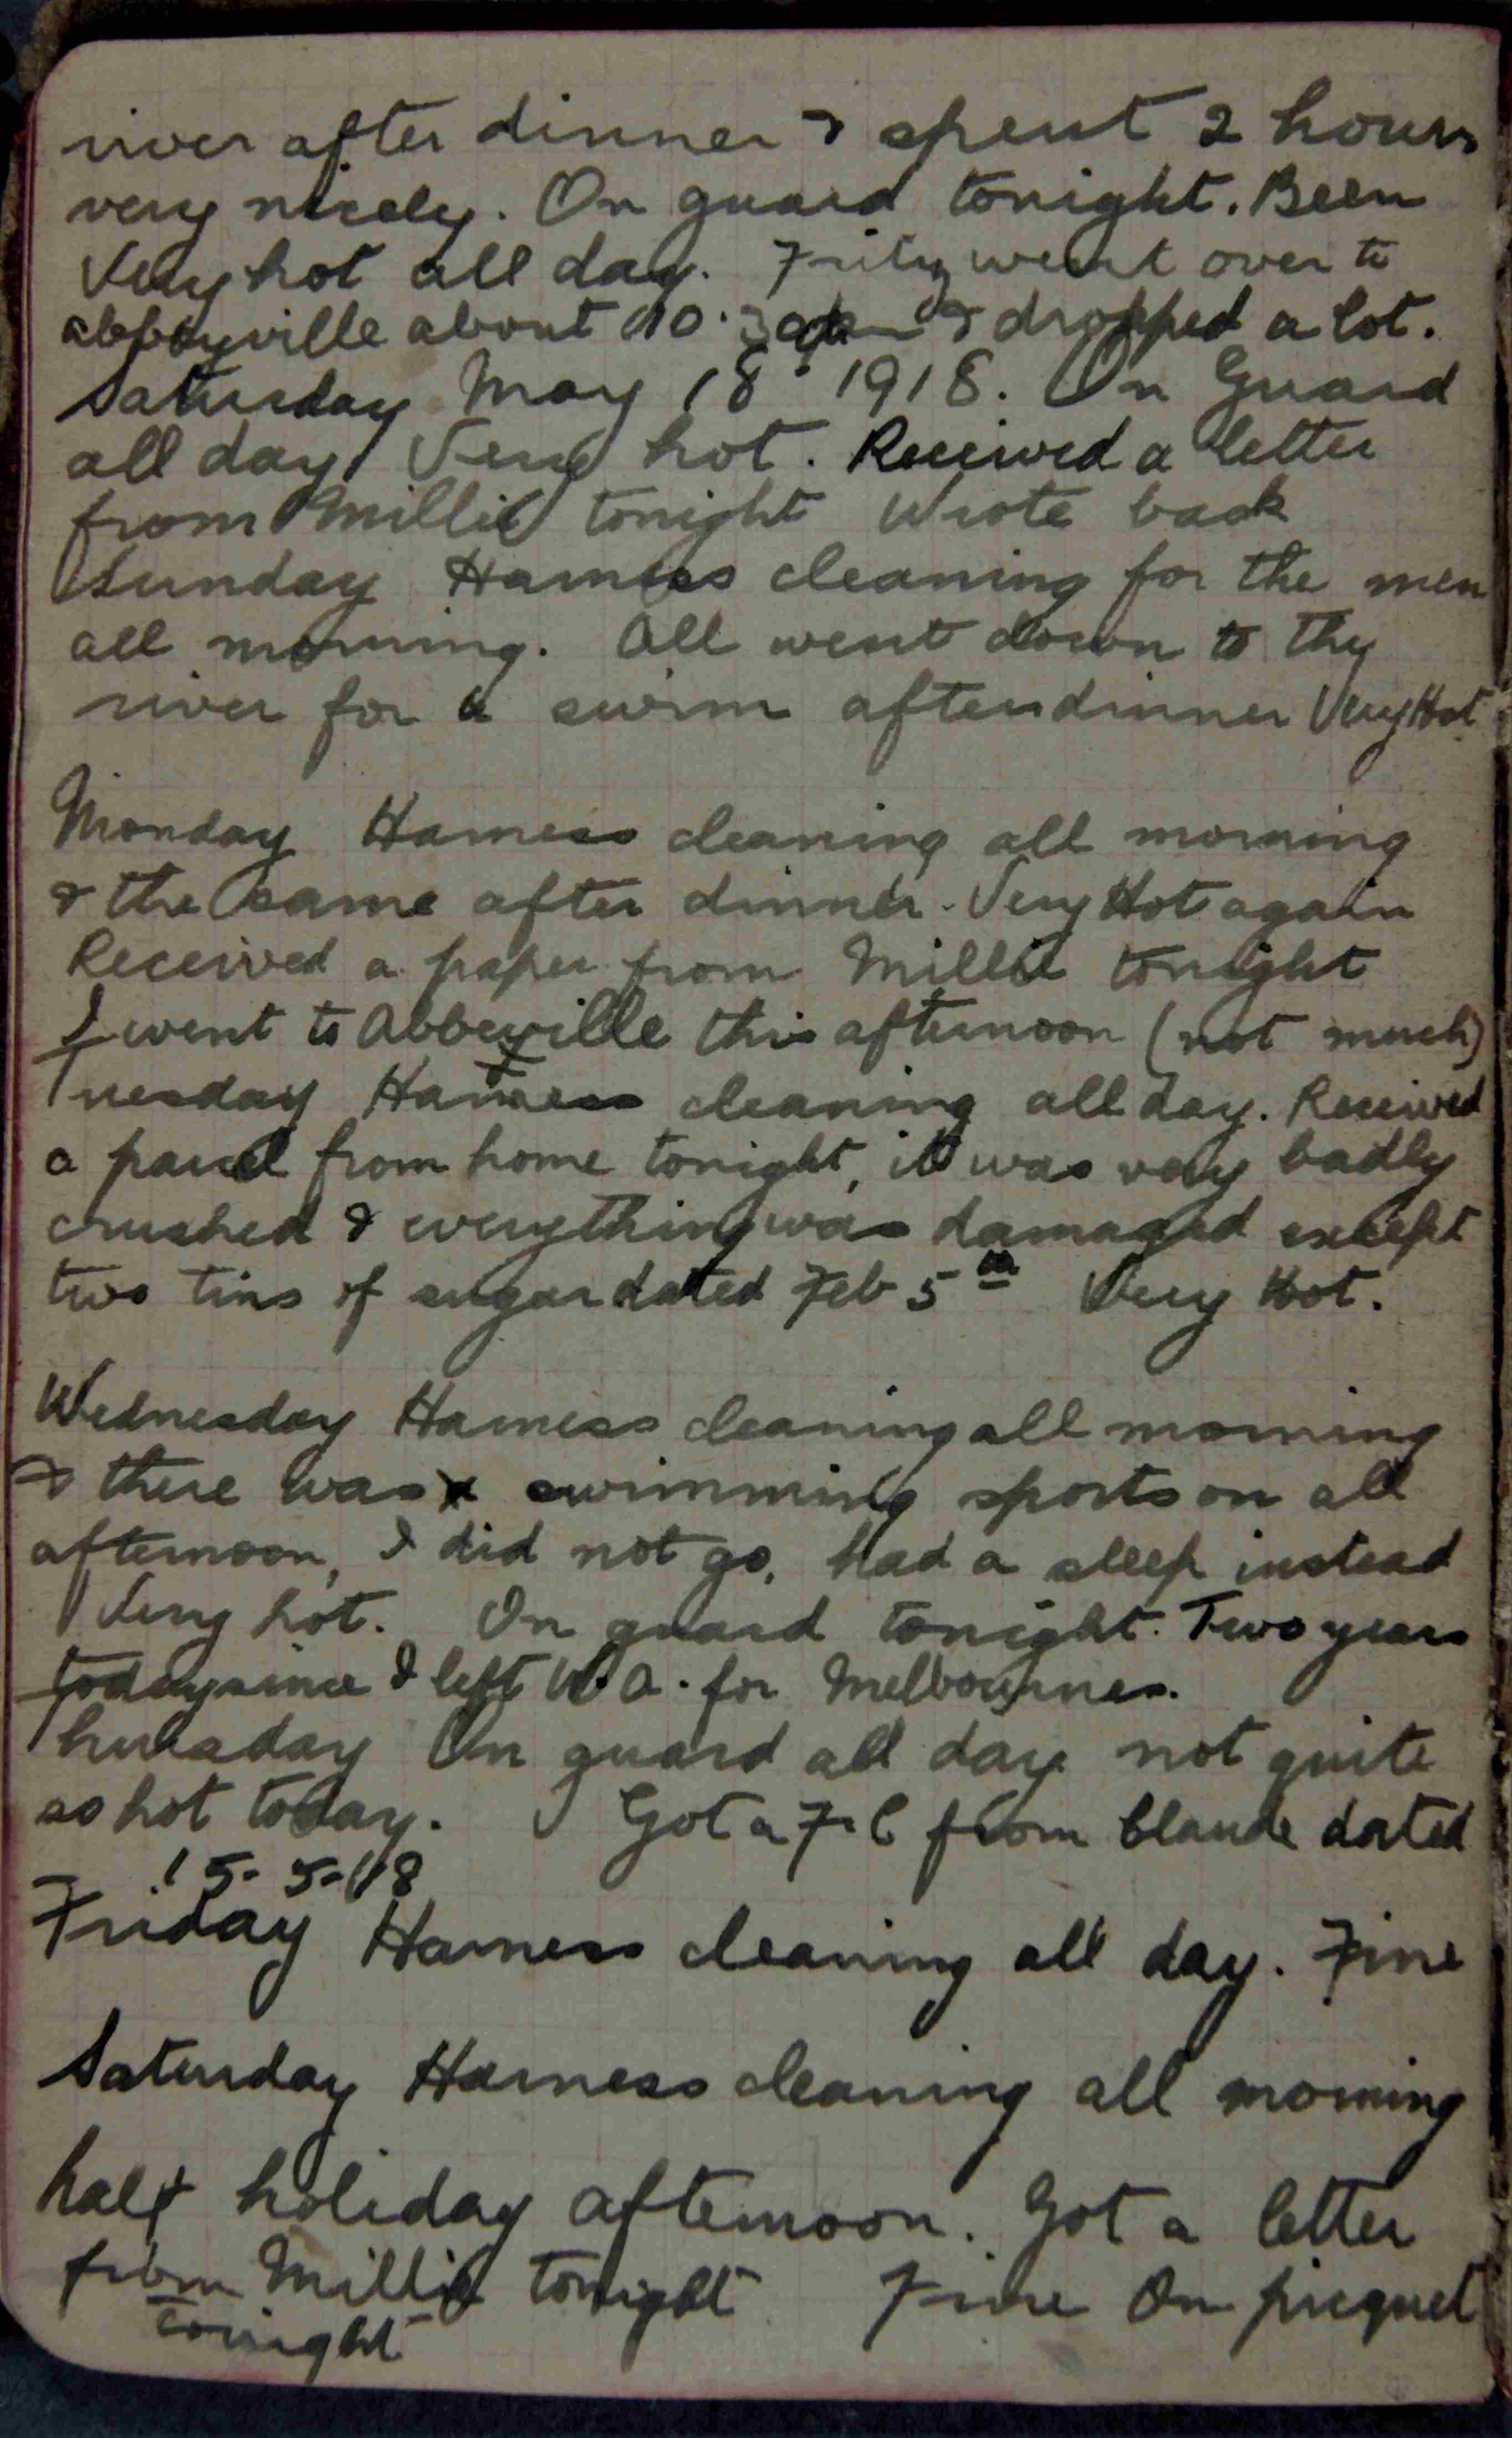 river after dinner & spent 2 hours
very nicely. On guard tonight. Been
Very hot all day. Fritz went over to
abbeyville about 10.30pm & dropped a lot.
Saturday May 18. 1918. On Guard
all day Very hot. Received a letter
from Millie tonight Wrote back
Sunday Harness cleaning for the men
all morning. All went down to the
river for a swim after dinner Very Hot
Monday Harness cleaning all morning
& the same after dinner. Very Hot again
Received a paper from Millie tonight
I went to Abbeyville this afternoon (not much)
Tuesday Harness cleaning all day. Received
a parcel from home tonight, it was very badly
crushed & everything was damaged except
two tins of sugar dated Feb 5th Very Hot.
Wednesday Harness cleaning all morning
& there was swimming sports on all
afternoon, I did not go, had a sleep instead
Very hot. On guard tonight. Two years
today since I left W.A. for Melbourne.
Thursday On guard all day not quite
so hot today. Got a F.C from Claude dated
15-5-18
Friday Harness cleaning all day. Fine
Saturday Harness cleaning all morning
half holiday afternoon. Got a letter
from Millie tonight Fine On picquet
tonight